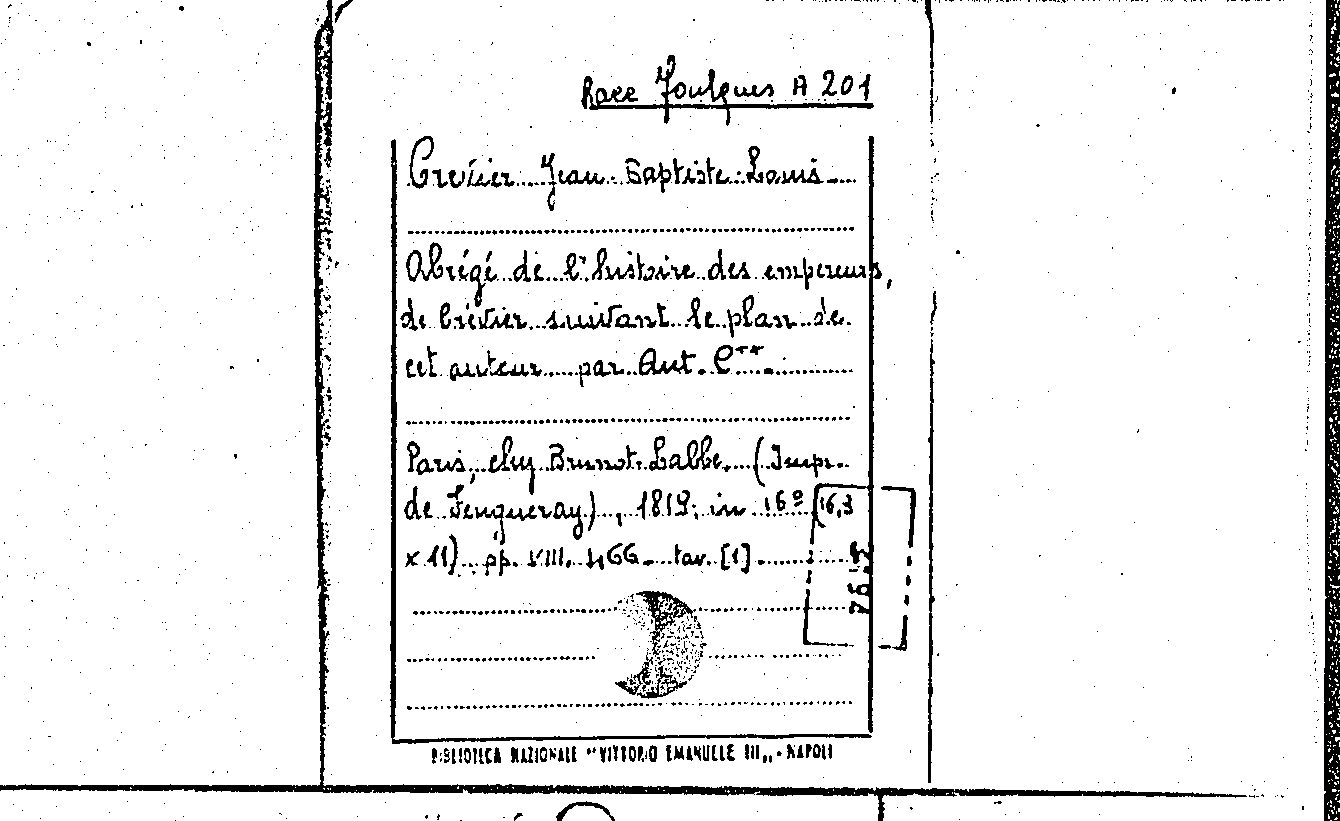 Race Foulques A 201
Crevier Jean-Baptiste-Louis
Abrégé de l'histoire des empereurs,
de Crévier suivant le plan de
cet auteur par Ant. C**
Paris, chez Brunot-Labbe, (Impr.
de Feugueray), 1819; in 16º (16,3
x 11) pp. VIII, 466 tav. [1]
BIBLIOTECA NAZIONALE "VITTORIO EMANUELE III„ - NAPOLI